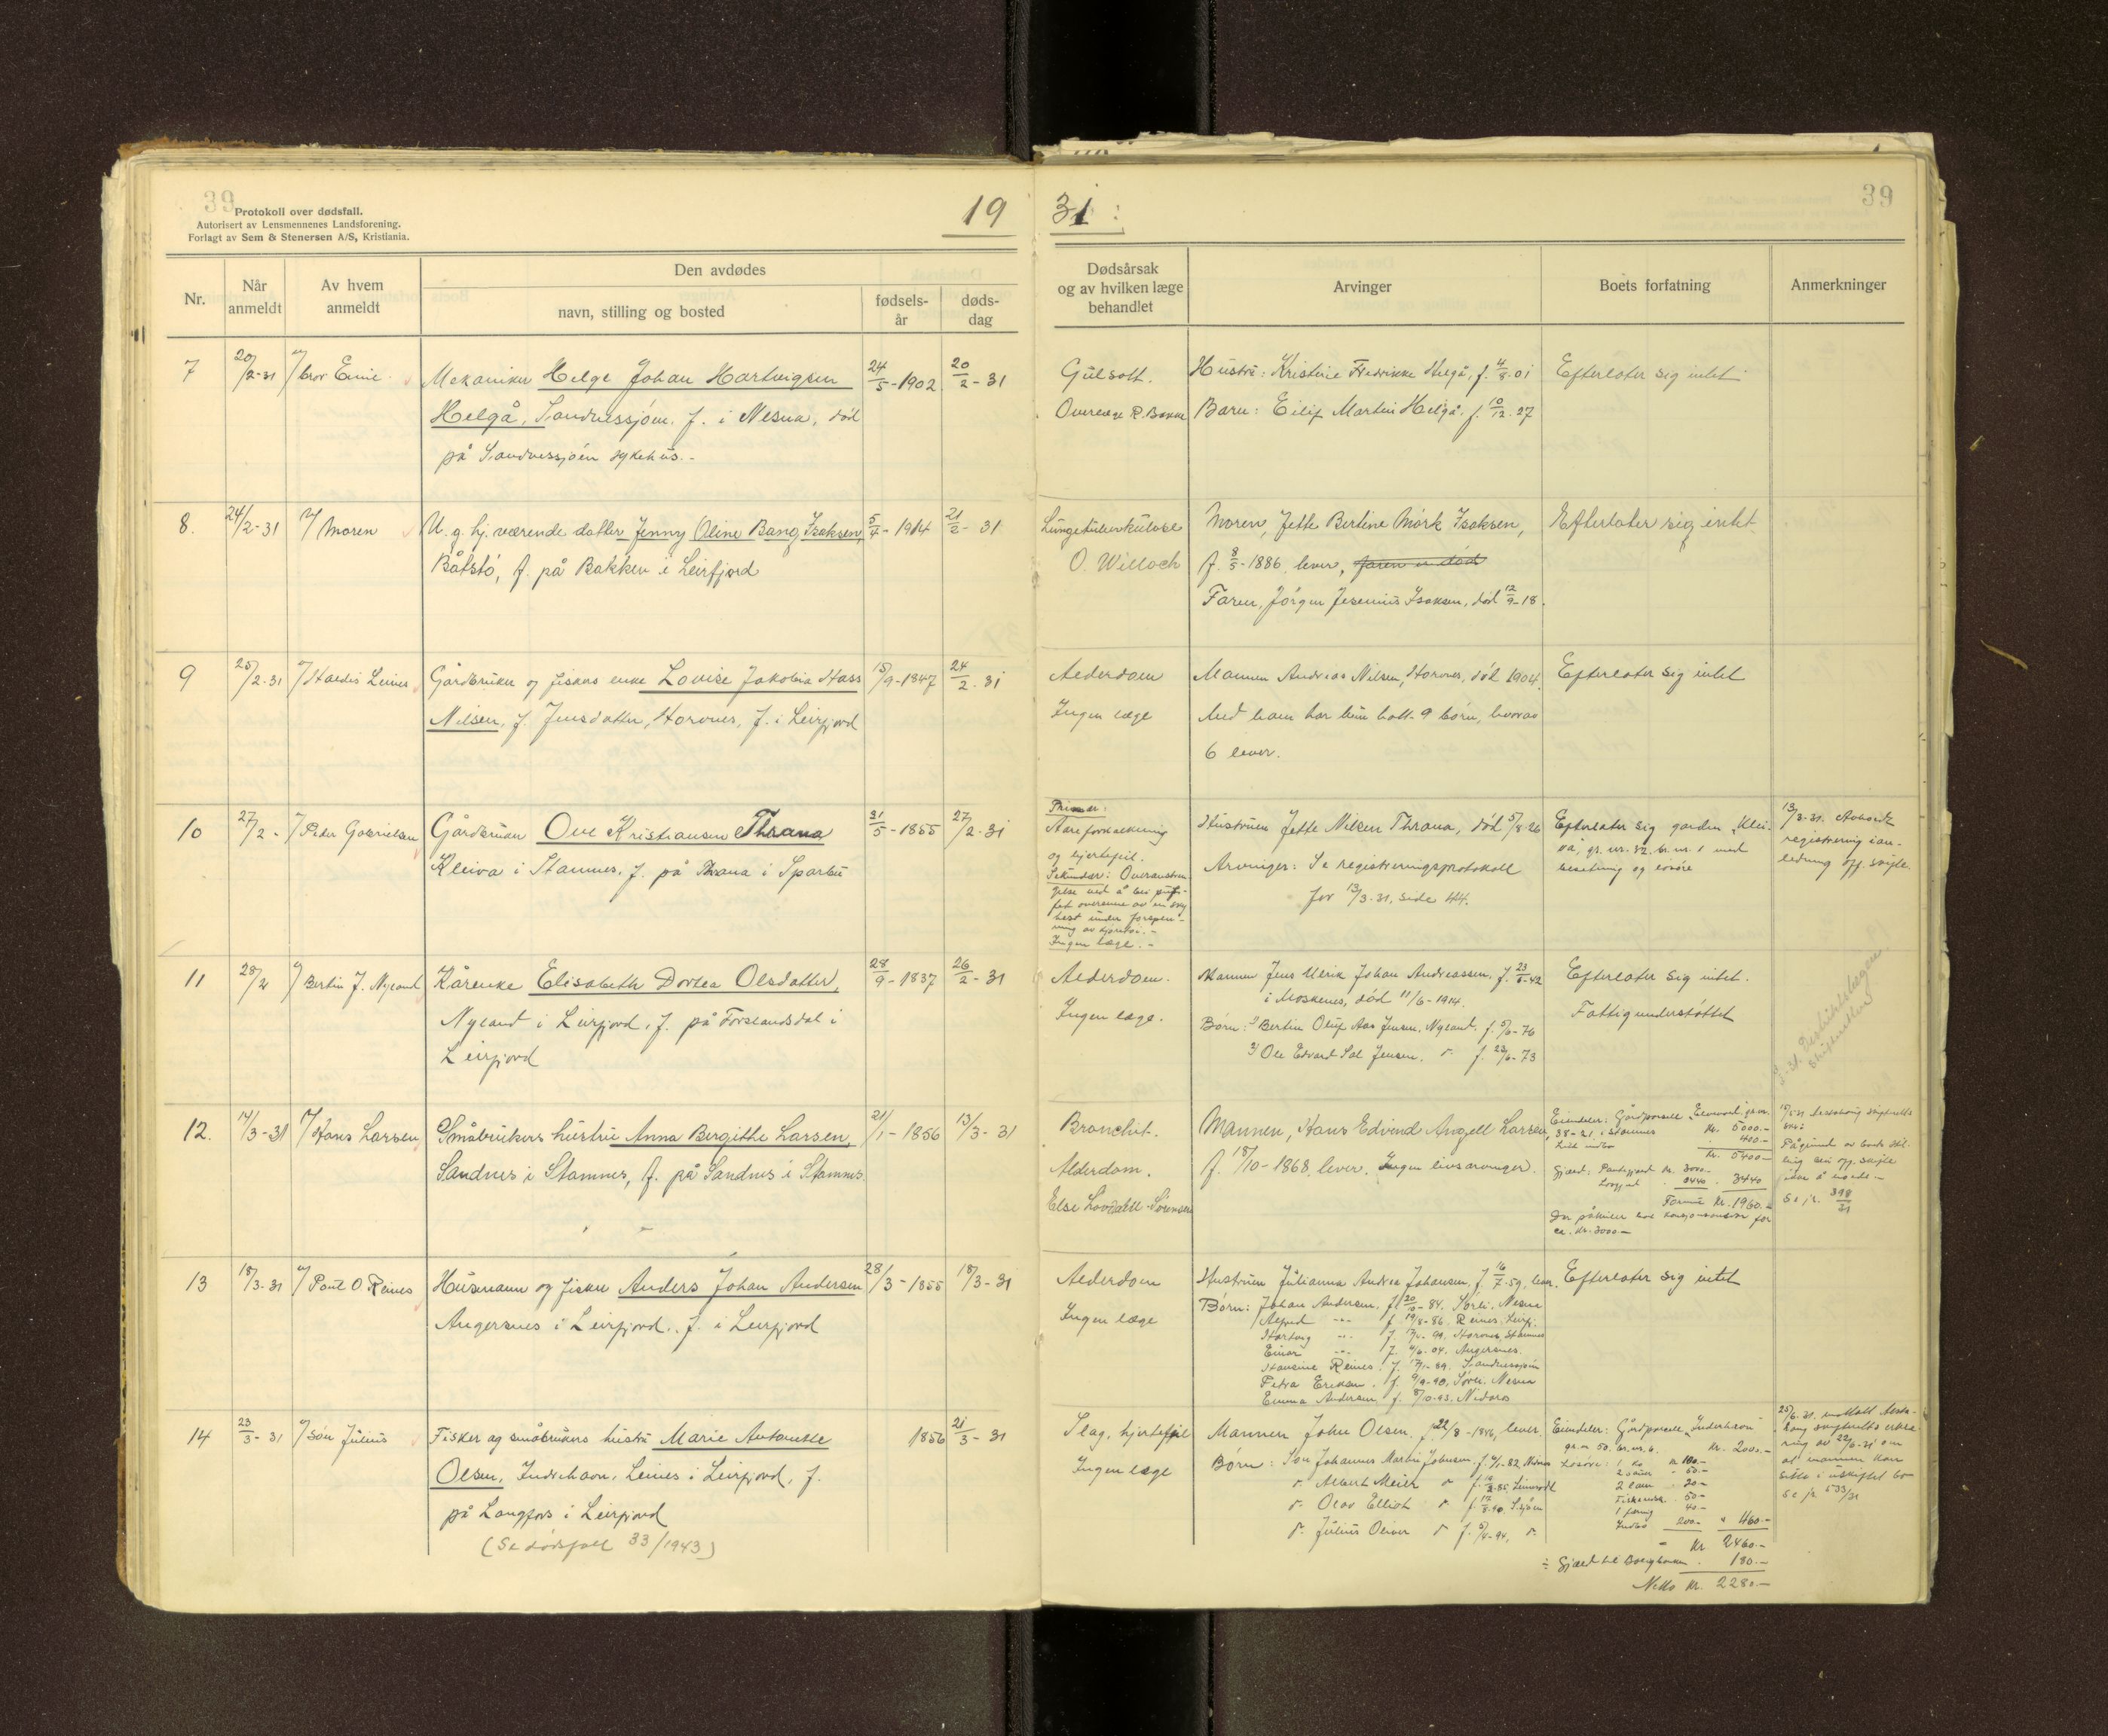 39
Protokoll over dødsfall.
Autorisert av Lensmennenes Landsforening.
Forlagt av Sem & Stenersen A/S, Kristiania.
19
31
39
Nr.
Når anmeldt
Av hvem anmeldt
Den avdødes
navn, stilling og bosted
fødsels-år
døds-dag
Dødsårsak og av hvilken læge behandlet
Arvinger
Boets forfatning
Anmerkninger
7
20/2-31
bror
Mekaniker Helge Johan Hartvigsen
Helgå, Sandnessjøen. f. i Nesna, død
på Sandnessjøen sykehus.-
24/5-1902
20/2-31
Gulsott.
Overlæge R. Bakke
Hustru: Kristine Fredrikke Helgå, f. 4/8-01
Barn: Eilif Martin Helgå. f. 10/12-27
Efterlater sig intet
8.
24/2-31
Moren
U. g. hj. værende datter Jenny Oline Bang Isaksen,
Båtstø, f. på Bakken i Leirfjord
5/4-1914
21/2-31
Lungetuberkulose
O. Willoch
Moren, Jette Bertine Mørk Isaksen,
f. 8/5-1886, lever, faren er død
Faren, Jørgen Jesenius Isaksen, død 12/9-18.
Efterlater sig intet
9
25/2-31
Leines
Gårdbruker og fiskers enke Lovise Jakobia Hass
Nilsen, f. Jensdatter, Horvnes, f. i Leirfjord
15/9-1847
24/2-31
Alderdom
Ingen læge
Mannen Andreas Nilsen, Horvnes, død 1904.
Med ham har hun hatt 9 børn, hvorav
6 lever.
Efterlater sig intet
10
27/2-
Peder Gabrielsen
Gårdbruker Ove Kristiansen Thrana
Kleiva i Stamnes, f. på Thrana i Sparbu
31/5-1855
27/2-31
Primær:
Åreforkalkning
og hjertefeil.
Sekundær: Overanstren-
gelse ved å bli puf-
fet overende av en
hest under forspen-
ning av
Ingen læge.-
Hustruen Jette Nilsen Thrana, død 5/8-26
Arvinger: Se registreringsprotokoll
for 13/3-31, side 44.
Efterlater sig garden "Klei-
va", gr. nr. 52. br. nr. 1 med
besetning og løsøre
13/3-31. Avholdt
registrering i an-
ledning off. skifte.
11
28/2
Bertin J. Nyland
Kårenke Elisabeth Dortea Olsdatter,
Nyland i Leirfjord, f. på Forslandsdal i
Leirfjord
28/9-1837
26/2-31
Alderdom.
Ingen læge.
Mannen Jens Ulrik Johan Andreassen, f. 23/8-42
i Moskenes, død 11/6-1914.
Børn: 1) Bertin Oluf Aas Jensen, Nyland, f. 5/6-76
2) Ole Edvard Sal Jensen. f. 23/6-73
Efterlater sig intet.
Fattigunderstøttet
12.
14/3-31
Hans Larsen
Småbrukers hustru Anna Bergithe Larsen,
Sandnes i Stamnes, f. på Sandnes i Stamnes.
21/1-1856
13/3-31
Bronchit.
Alderdom.
Else Lovdahl-Sørensen
Mannen, Hans Edvind Angell Larsen,
f. 18/10-1868, lever. Ingen livsarvinger.
Eiendeler: Gårdparsell
38-21 i Stamnes kr. 5000.-
Litt indbo 400.-
kr. 5400.-
Gjæld: Pantegjæld kr. 3000.-
440 3440
Formue kr. 1960.-
ca. kr. 3000.-
På grund av boets stil-
ling blir off. skifte
ikke å
Se jr. 398/31
13
18/3-31
Paul O. Reines
Husmann og fisker Anders Johan Andersen
Angersnes i Leirfjord, f. i Leirfjord
28/3-1855
18/3-31
Alderdom
Ingen læge
Hustruen Julianna Andrea Johansen, f. 16/7-59, lever.
Børn: Johan Andersen, f. 20/10-84. Nesna
Alfred f. 19/8-86. Reines. Leirfj.
Hartvig Horvnes, Stamnes
Einar f. 4/6-04. Angersnes.
Hansine Reines. Sandnessjøen
Petra Eriksen f. 9/9-90, Nesna
Emma Andersen f. 8/10-93. Nidaros
Efterlater sig intet
14
23/3-31
søn Julius
Fisker og småbrukers hustru Marie Antonette
Olsen, Inderhavn, Leines i Leirfjord, f.
på Langfors i Leirfjord
(Se dødsfall 33/1943)
1856
21/3-31
Slag, hjertefeil
Ingen læge
Mannen John Olsen. f. 22/8-1846, lever.
Børn: Søn Johannes Martin Johnsen f. Nesna
Albert Meier
Olav Elliot
Julius Oliver f. 5/4-94,
Eiendeler: Gårdparsell "Inderhavn"
gr.nr 50. br. nr. 6. kr. 2000.-
Løsøre: 1 ku kr 100.-
2 sauer 50.-
2 lam 20.-
Fiskeredsk. 50.-
1 færing 40.-
Indbo 200.- 460.-
kr. 2460.-
÷ Gjæld til 180.-
Netto kr. 2280.-
25/6-31. mottatt
ring av 22/6-31 om
at mannen kan
sitte i uskiftet bo
Se jr 533/31